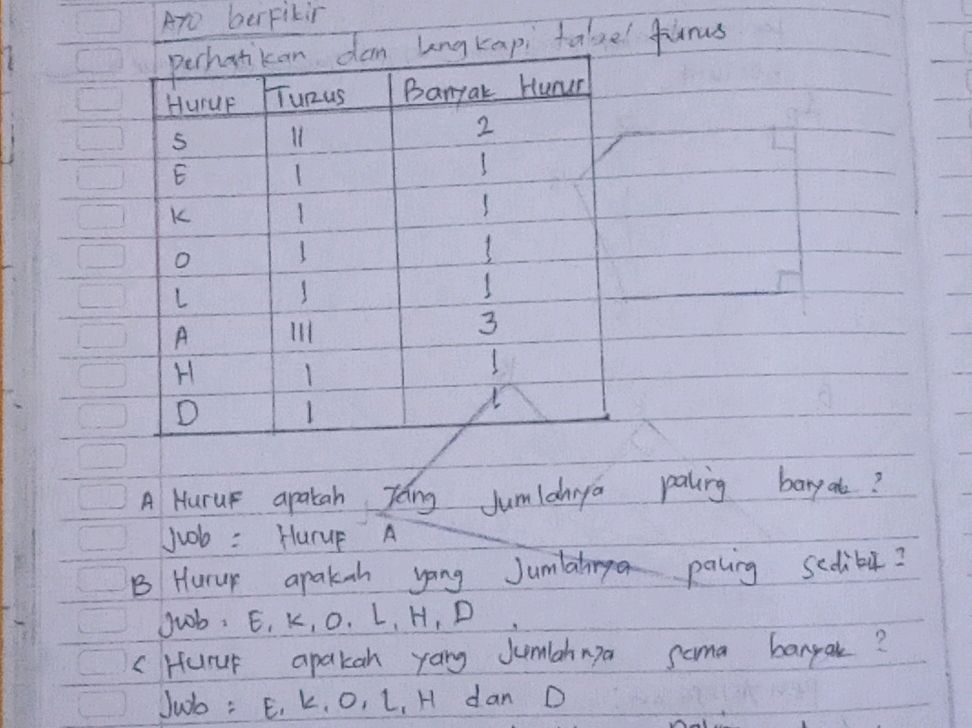 Ayo berfikir
perhatikan dan lengkapi tabel turus
Huruf Turus Banyak Huruf
S || 2
E | 1
K | 1
O | 1
L | 1
A ||| 3
H | 1
D | 1
A Huruf apakah yang Jumlahnya paling banyak ?
Jwb : Huruf A
B Huruf apakah yang Jumlahnya paling sedikit ?
Jwb : E, K, O, L, H, D
C Huruf apakah yang Jumlahnya sama banyak ?
Jwb : E, K, O, L, H dan D